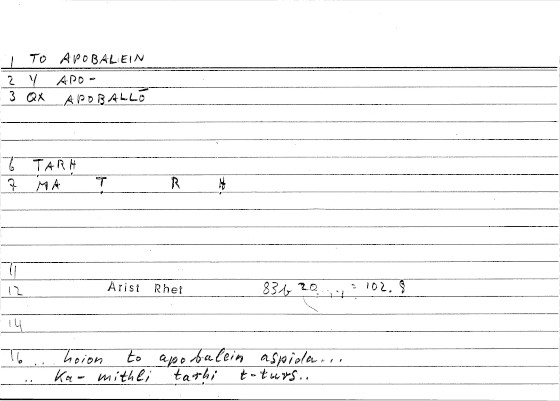 1 TO APOBALEIN
2 V APO-
3 QX APOBALLŌ
6 ṬARḤ
7 MA Ṭ R Ḥ
11
12 Arist Rhet 83b 20 = 102. 9
14
16 .. hoion to apobalein aspida...
.. Ka- mithli tarhi t-turs..